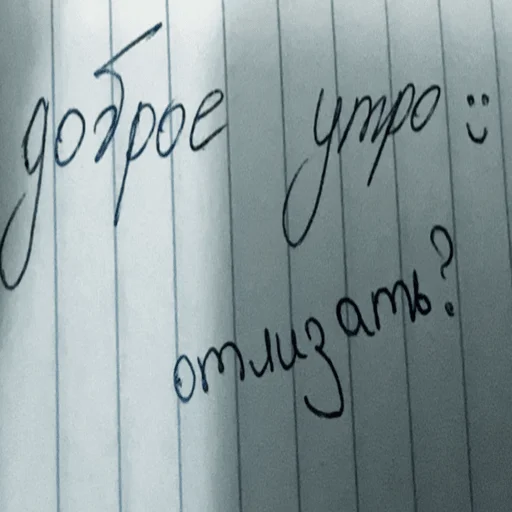 доброе утро :)
отлизать?